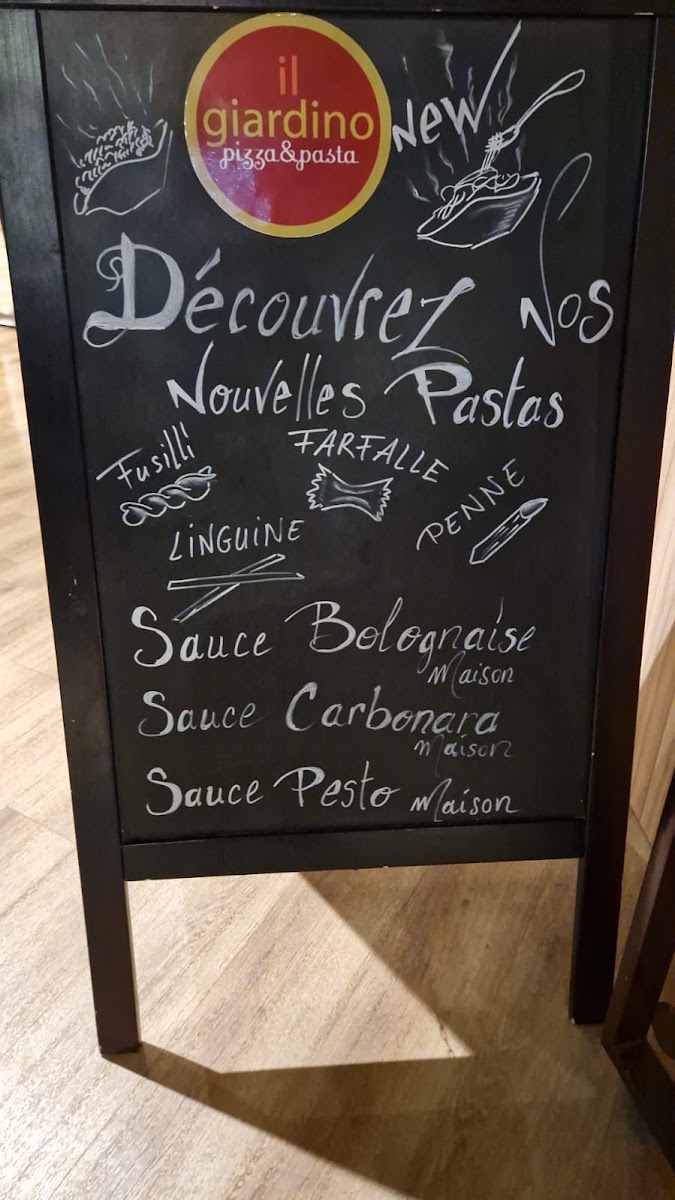 il
giardino
pizza&pasta
New
Découvrez Nos
Nouvelles Pastas
Fusilli
FARFALLE
LINGUINE
PENNE
Sauce Bolognaise
Maison
Sauce Carbonara
Maison
Sauce Pesto Maison